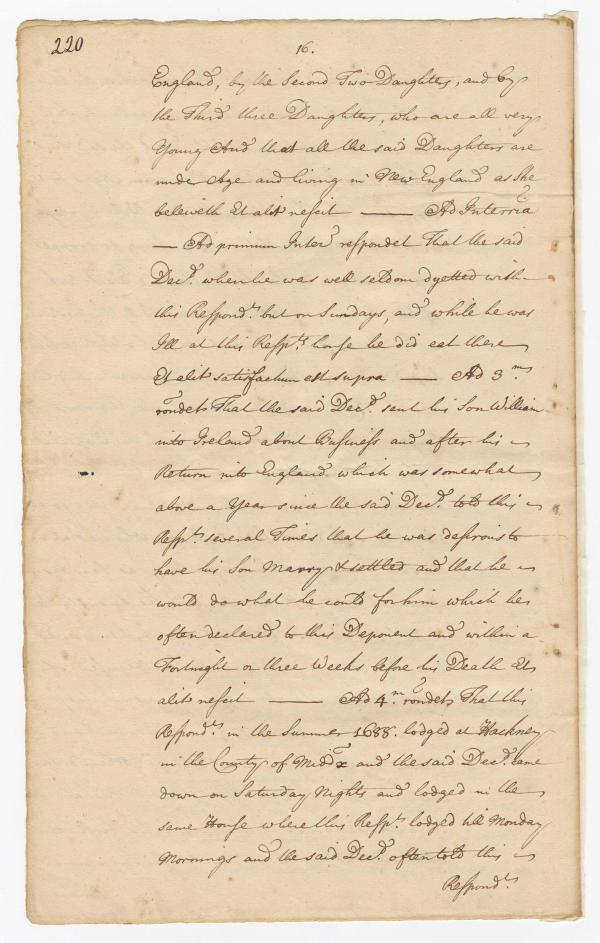 220
16.
England, by the Second Two Daughters, and by
the Third three Daughters, who are all very
Young And that all the said Daughters are
under Age and living in New England as She
beleiveth Et alit nescit —— Ad Interria
— Ad primum Interr respondet That the said
Decd. when he was well seldom dyetted with
this Respondt. but on Sundays, and while he was
Ill at this Respts. house he did eat there
Et alit satisfactum est supra —— Ad 3m
rondet That the said Decd. sent his Son William
into Ireland about Business and after his
Return into England which was somewhat
above a Year since the said Decd. told this
Respt. several Times that he was desirous to
have his Son Marry & settled and that he
would do what he could for him which he
often declared to this Deponent and within a
Fortnight or three Weeks before his Death Et
alit nescit —— Ad 4m. rondet That this
Respondt. in the Summer 1688. lodged at Hackney
in the County of Middx and the said Decd. came
down on Saturday Nights and lodged in the
same House where this Respt. lodged till Monday
Mornings and the said Decd. often told this
Respondt.